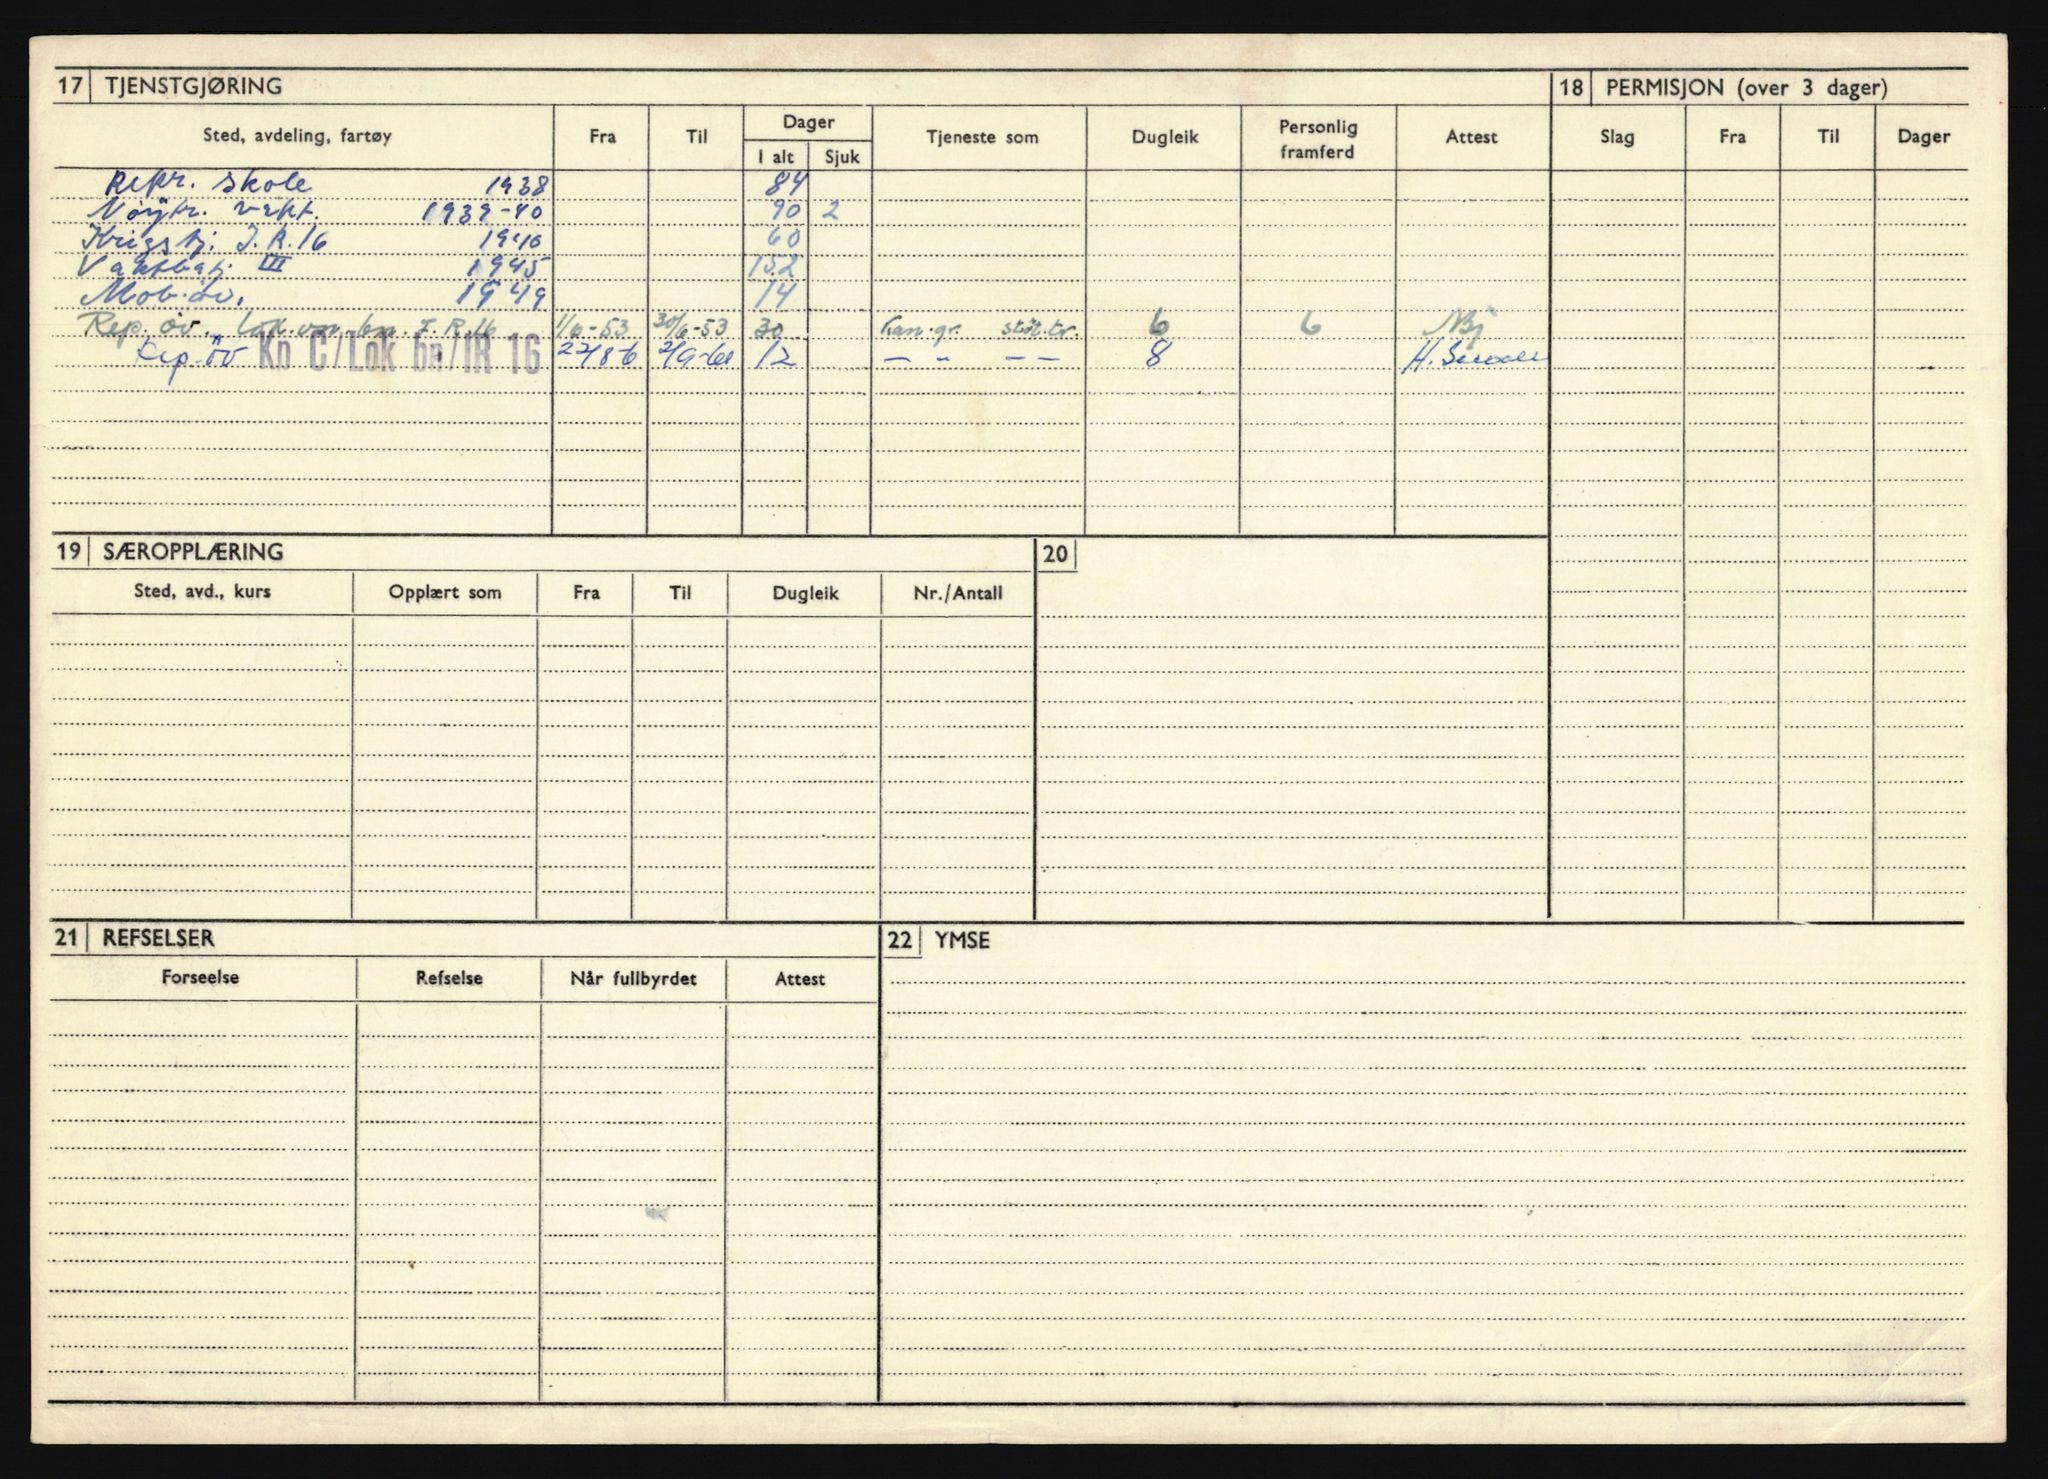 17 TJENSTGJØRING
18 PERMISJON (over 3 dager)
Sted, avdeling, fartøy Fra Til Dager I alt Sjuk Tjeneste som Dugleik Personlig framferd Attest
Slag Fra Til Dager
Rekr. skole 1938 84
Nøytr. vakt. 1939-40 90 2
Krigstj. I.R.16 1940 60
Vaktbatj. III 1945 152
Mob. öv. 1949 14
Rep. öv. Lok. I.R.16 1/6-53 30/6-53 30 Kan.gr. støt.tr. 6 6
Rep öv Kp C/Lok bn/IR 16 22/8-6 2/9-60 12 — " — — 8 H.
19 SÆROPPLÆRING
Sted, avd., kurs Opplært som Fra Til Dugleik Nr./Antall
20
21 REFSELSER
Forseelse Refselse Når fullbyrdet Attest
22 YMSE